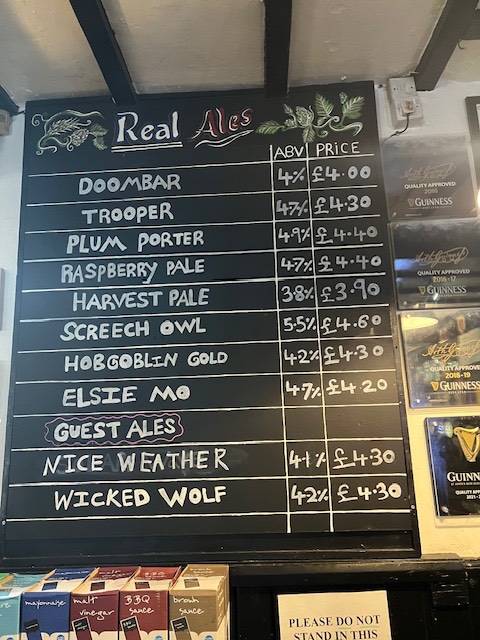 Real Ales
ABV PRICE
DOOMBAR 4% £4.00
TROOPER 4.7% £4.30
PLUM PORTER 4.9% £4.40
RASPBERRY PALE 4.7% £4.40
HARVEST PALE 3.8% £3.90
SCREECH OWL 5.5% £4.60
HOBGOBLIN GOLD 4.2% £4.30
ELSIE MO 4.7% £4.20
GUEST ALES
NICE WEATHER 4.1% £4.30
WICKED WOLF 4.2% £4.30
QUALITY APPROVED
GUINNESS
QUALITY APPROVED
2016-17
GUINNESS
QUALITY APPROVED
2018-19
GUINNESS
GUINN
mayonnaise
malt vinegar
BBQ sauce
brown sauce
PLEASE DO NOT
STAND IN THIS